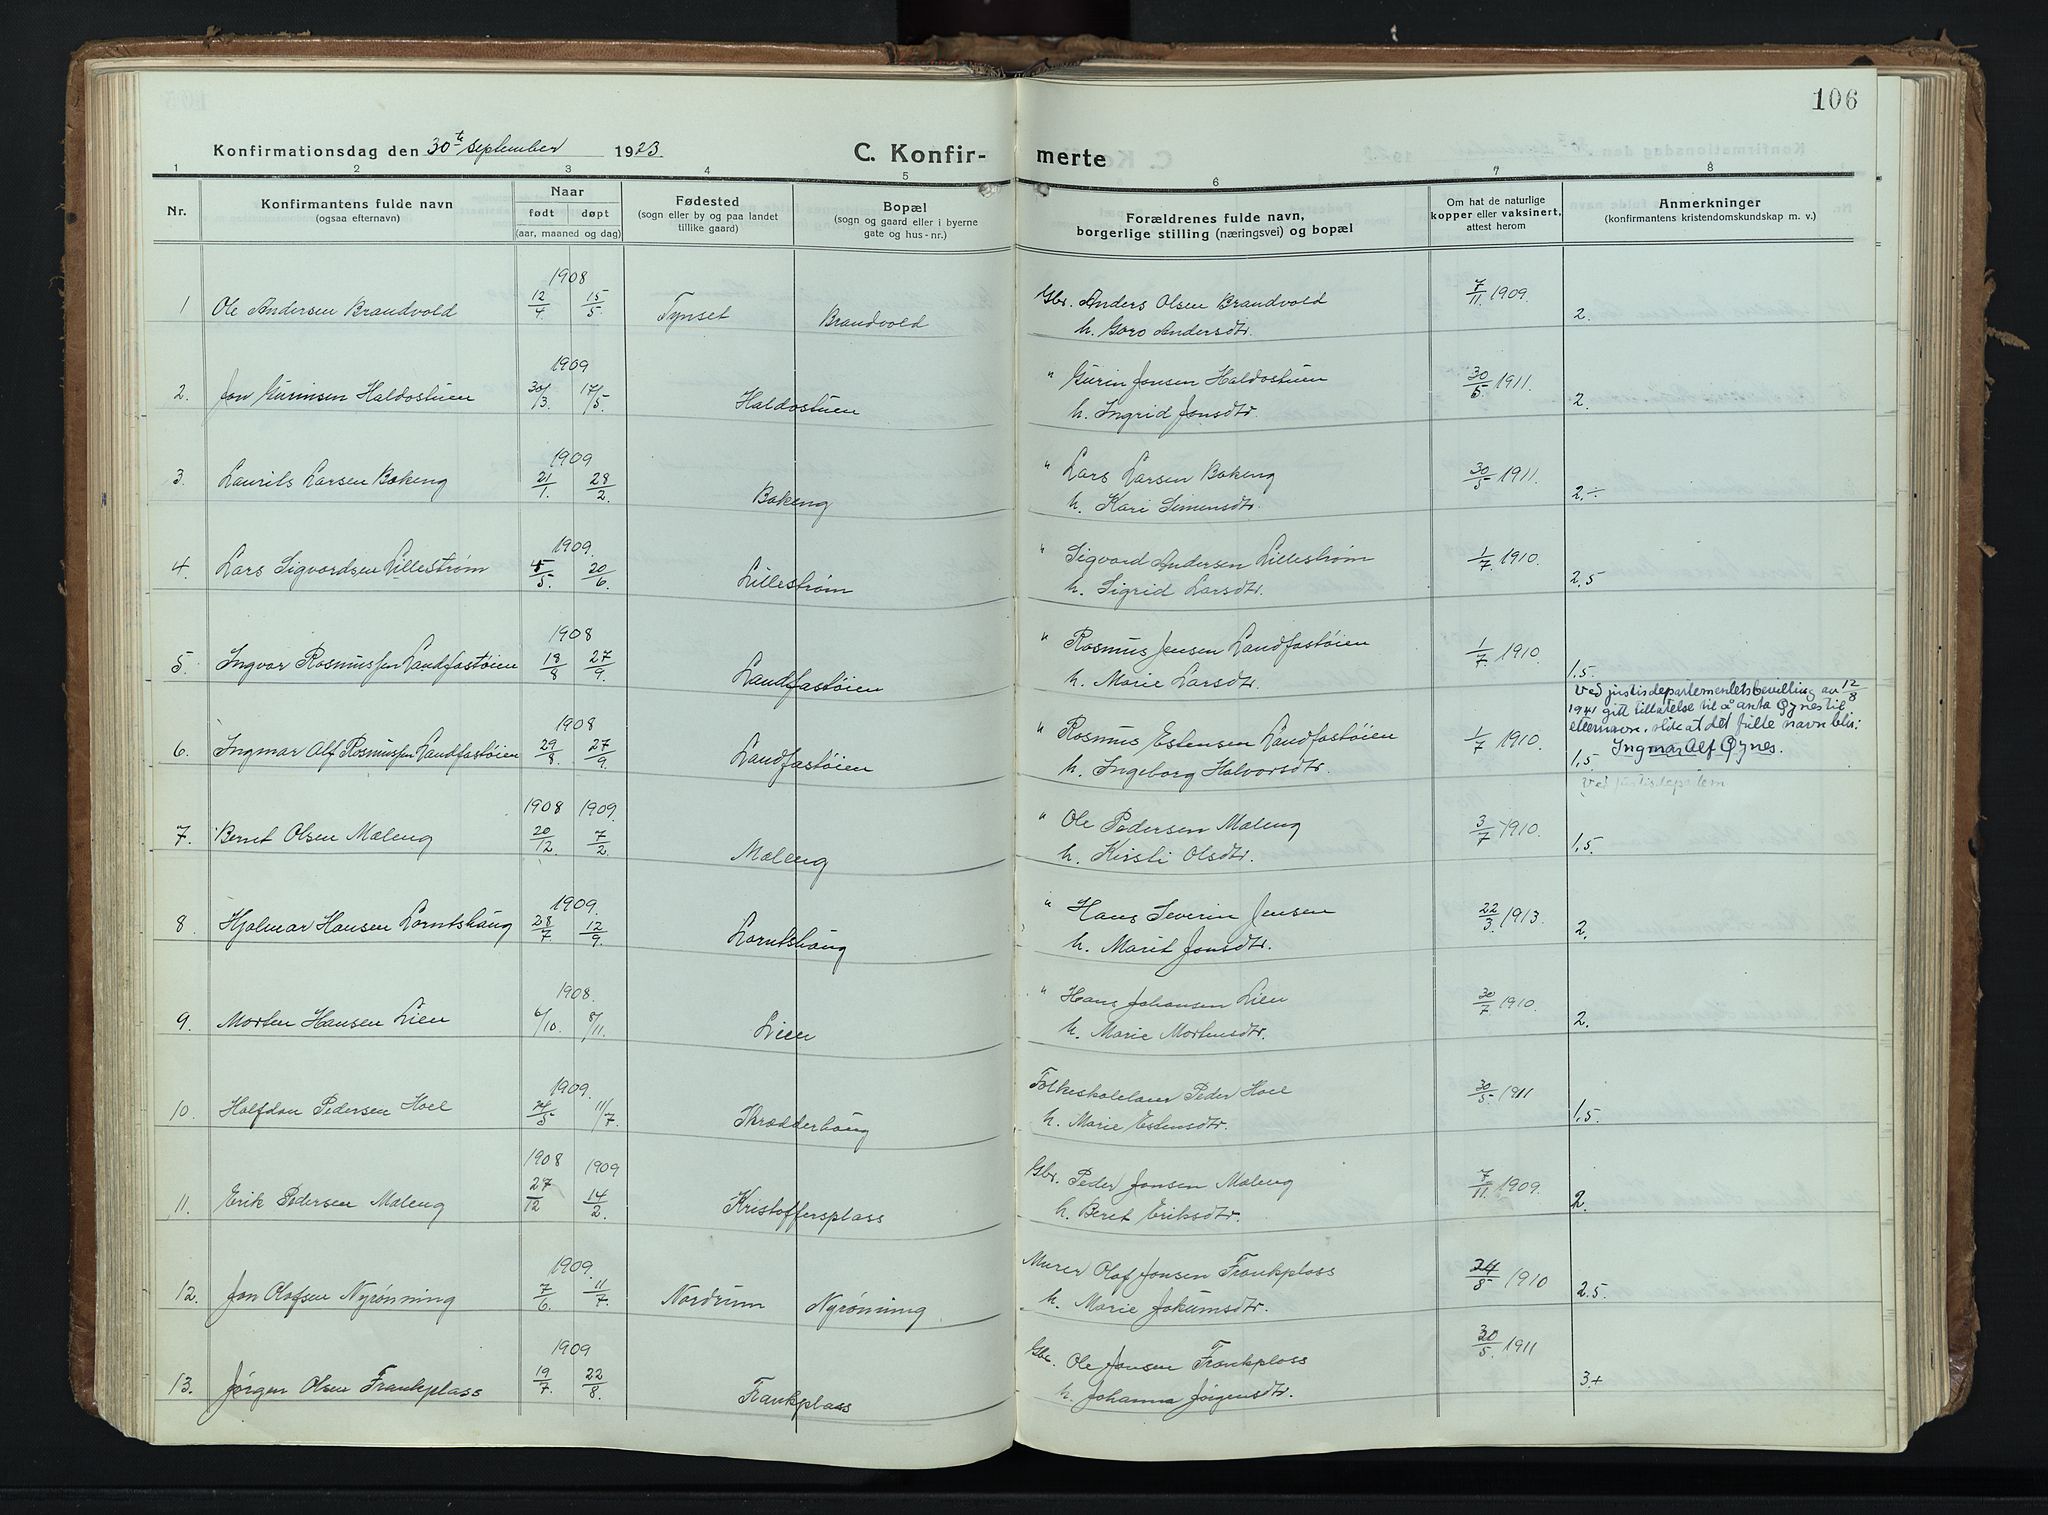 106
Konfirmationsdag den 30te september 1923
C. Konfir-
merte
1 2 3 4 5 6 7 8
Nr.
Konfirmantens fulde navn
(ogsaa efternavn)
Naar
født døpt
(aar, maaned og dag)
Fødested
(sogn eller by og paa landet
tillike gaard)
Bopæl
(sogn og gaard eller i byerne
gate og hus-nr.)
Forældrenes fulde navn,
borgerlige stilling (næringsvei) og bopæl
Om hat de naturlige
kopper eller vaksinert,
attest herom
Anmerkninger
(konfirmantens kristendomskundskap m. v.)
1908
1 Ole Andersen Brandvold 12/4 15/5 Tynset Brandvold Gbr. Anders Olsen Brandvold 7/11 1909. 2.
h. Goro Andersdtr.
1909
2. Jon Gurinsen Haldostuen 30/3 17/5 Haldostuen " Gurin Jonsen Haldostuen 30/5 1911. 2.
h. Ingrid Jonsdtr.
1909
3. Laurits Larsen Bakeng 21/1. 28/2. Bakeng " Lars Larsen Bakeng 30/5 1911. 2.÷
h. Kari Simensdtr.
1909.
4. Lars Sigvardsen Lillestrøm 5/5. 20/6 Lillestrøm " Sigvard Andersen Lillestrøm 1/7. 1910. 2,5
h. Sigrid Larsdtr.
1908
5. Ingvar Rasmussen Landfastøien 18/8 27/9. Landfastøien " Rasmus Jensen Landfastøien 1/7 1910. 1,5.
h. Marie Larsdtr.
Ved justisdepartementets bevilling av 12/8
1941 gitt tillatelse til å anta Øynes til
etternavn, slik at det fulle navn blir:
Ingmar Alf Øynes.
1908
6. Ingmar Alf Rasmussen Landfastøien 29/8. 27/9 Landfastøien " Rasmus Estensen Landfastøien 1/7 1910. 1,5
h. Ingeborg Halvorsdtr.
Ved justisdepartem
1908 1909.
7. Bernt Olsen Mæleng 20/12. 7/2 Mæleng " Ole Pedersen Mæleng 3/7 1910. 1,5.
h. Kirsti Olsdtr.
1909.
8 Hjalmar Hansen Lorntshaug 28/7 12/9. Lorntshaug " Hans Severin Jensen 22/3. 1913. 2.
h. Marit Jonsdtr.
1908.
9. Morten Hansen Lien 6/10. 8/11. Lien " Hans Johansen Lien 30/7 1910. 2.
h. Marie Mortensdtr.
1909.
10. Halfdan Pedersen Hoel /5 11/7. Skrædderhaug Folkeskolelærer Peder Hoel 30/5. 1911 1,5.
h. Marie Estensdtr.
1908 1909
11. Erik Pedersen Mæleng 27/12 14/2. Kristoffersplass Gbr. Peder Jonsen Mæleng 7/11 1909. 2.
h. Beret Eriksdtr.
1909.
12. Jon Olafsen Nyrønning 7/6. 11/7. Nordrum Nyrønning Murer Olaf Jonsen Frankplass 24/8 1910 2.5.
h. Marie Jokumsdtr.
1909
13. Jørgen Olsen Frankplass 19/7. 22/8. Frankplass Gbr. Ole Jonsen Frankplass 30/5. 1911 3.+
h. Johanna Jørgensdtr.